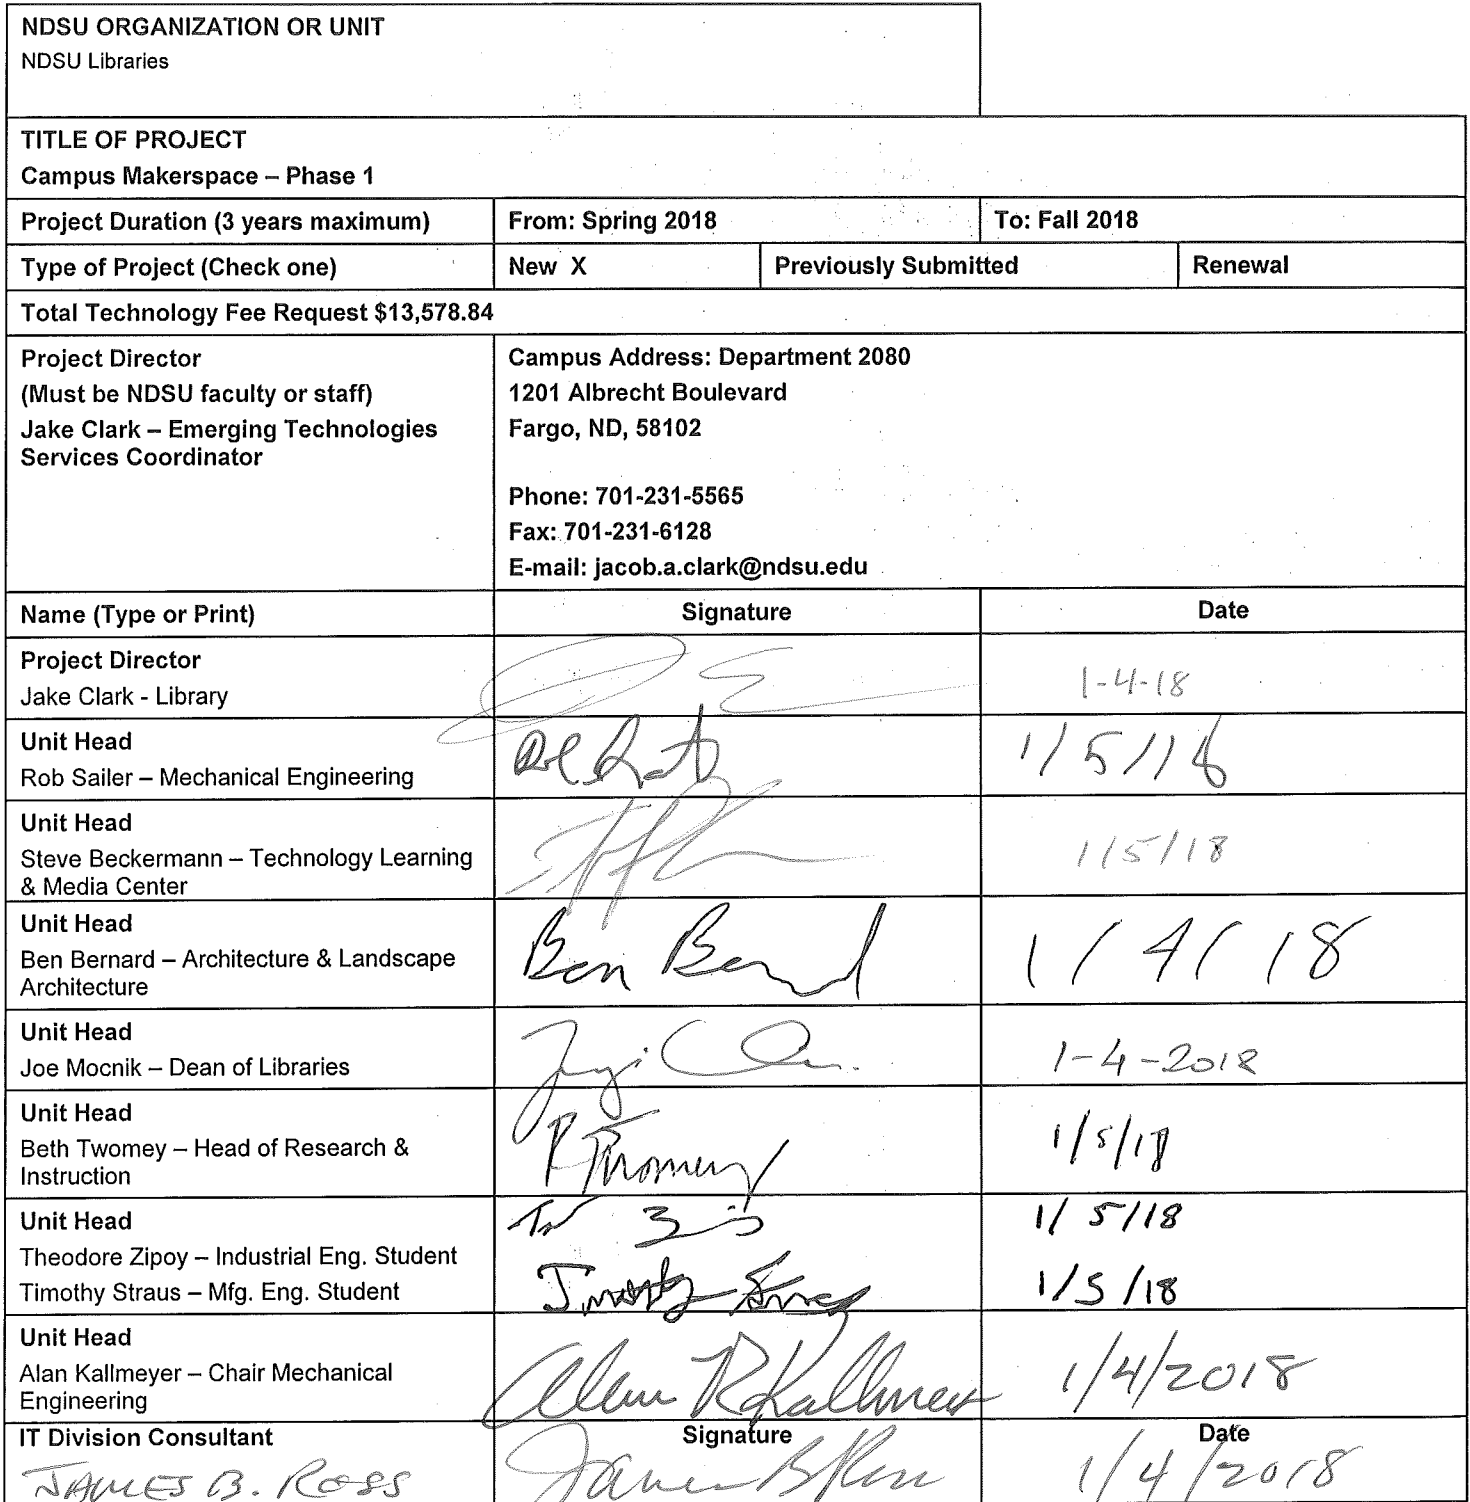 NDSU ORGANIZATION OR UNIT
NDSU Libraries
TITLE OF PROJECT
Campus Makerspace – Phase 1
Project Duration (3 years maximum) From: Spring 2018 To: Fall 2018
Type of Project (Check one) New X Previously Submitted Renewal
Total Technology Fee Request $13,578.84
Project Director
(Must be NDSU faculty or staff)
Jake Clark – Emerging Technologies
Services Coordinator
Campus Address: Department 2080
1201 Albrecht Boulevard
Fargo, ND, 58102
Phone: 701-231-5565
Fax: 701-231-6128
E-mail: jacob.a.clark@ndsu.edu
Name (Type or Print) Signature Date
Project Director
Jake Clark - Library 1-4-18
Unit Head
Rob Sailer – Mechanical Engineering 1/5/18
Unit Head
Steve Beckermann – Technology Learning
& Media Center 1/5/18
Unit Head
Ben Bernard – Architecture & Landscape
Architecture Ben Bernard 1/4/18
Unit Head
Joe Mocnik – Dean of Libraries 1-4-2018
Unit Head
Beth Twomey – Head of Research &
Instruction Twomey 1/5/18
Unit Head
Theodore Zipoy – Industrial Eng. Student 1/5/18
Timothy Straus – Mfg. Eng. Student Timothy Straus 1/5/18
Unit Head
Alan Kallmeyer – Chair Mechanical
Engineering Alan R Kallmeyer 1/4/2018
IT Division Consultant Signature Date
JAMES B. ROSS James B Ross 1/4/2018